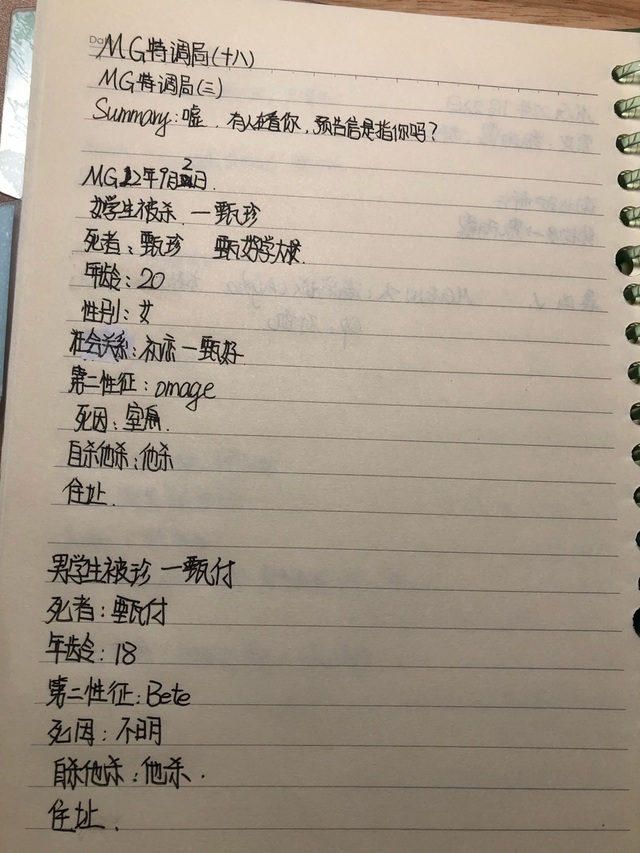 Da
MG特调局(十八)
MG特调局(三)
Summary:嘘,有人在看你,预告信是指你吗?
MG22年9月2日.
女学生被杀 —甄珍
死者:甄珍 甄好学大
年龄:20
性别:女
社会关系:初恋—甄好
第二性征:omage
死因:窒息.
自杀他杀:他杀
住址.
男学生被珍 —甄付
死者:甄付
年龄:18
第二性征:Bete
死因:不明
自杀他杀:他杀.
住址.